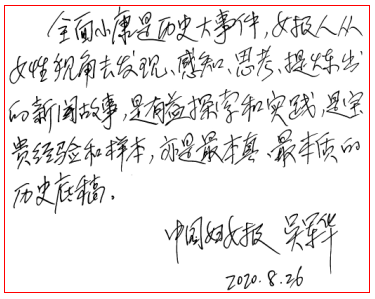 全面小康是历史大事件，女报人从
女性视角去发现、感知、思考、提炼出
的新闻故事，是有益探索和实践，是宝
贵经验和样本，亦是最本真、最本质的
历史底稿。
中国妇女报 吴军华
2020.8.26